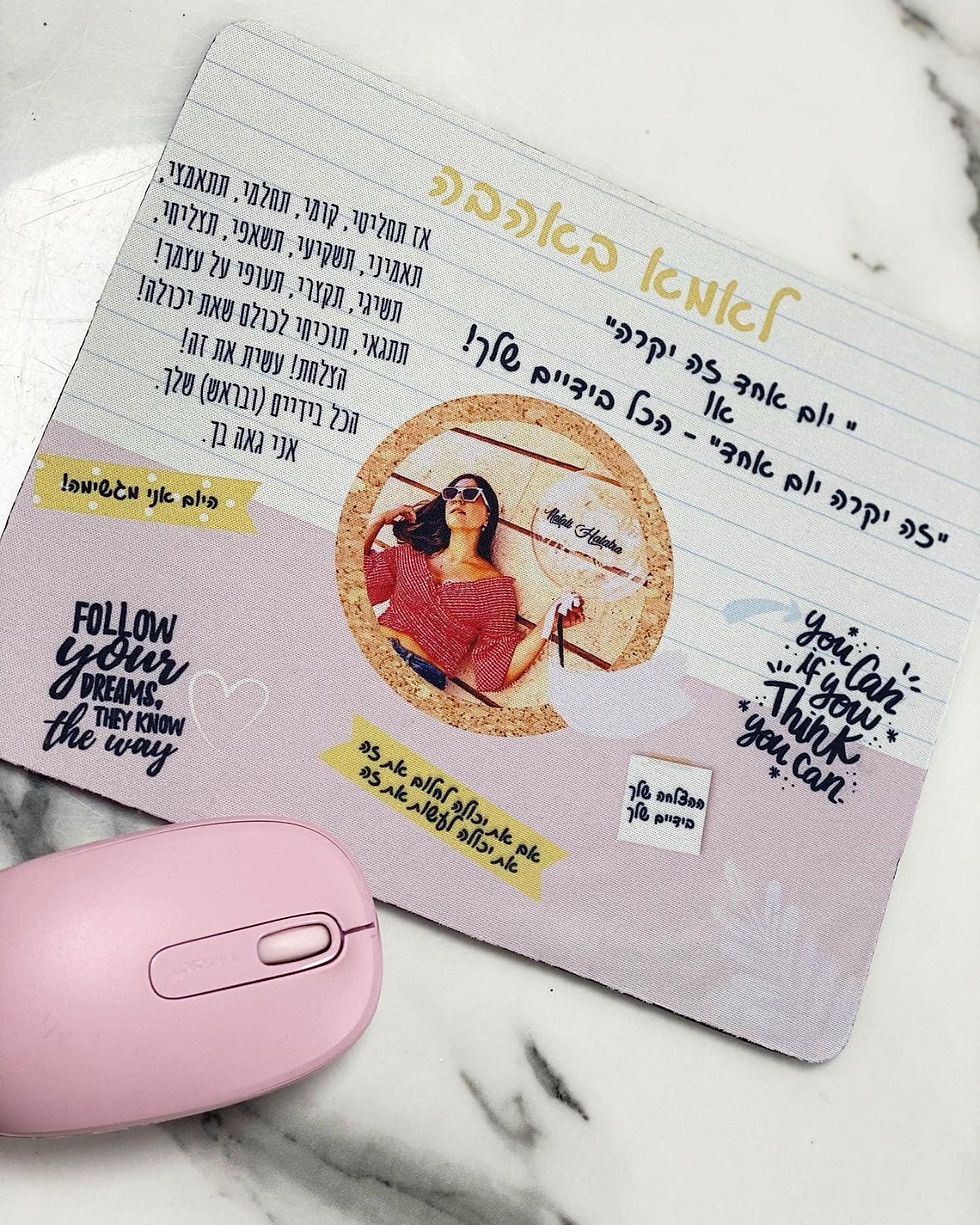 לאמא באהבה
" יום אחד זה יקרה"
או
"זה יקרה יום אחד" - הכל בידיים שלך!
אז תחליטי, קומי, תחלמי, תתאמצי,
תאמיני, תשקיעי, תשאפי, תצליחי,
תשיגי, תקצרי, תעופי על עצמך!
תתגאי, תוכיחי לכולם שאת יכולה!
הצלחת! עשית את זה!
הכל בידיים (ובראש) שלך.
אני גאה בך.
היום אני מגשימה!
FOLLOW
your
DREAMS,
THEY KNOW
the way
you Can
if you
Think
you Can.
אם את יכולה לחלום את זה
את יכולה לעשות את זה
ההצלחה שלך
בידיים שלך